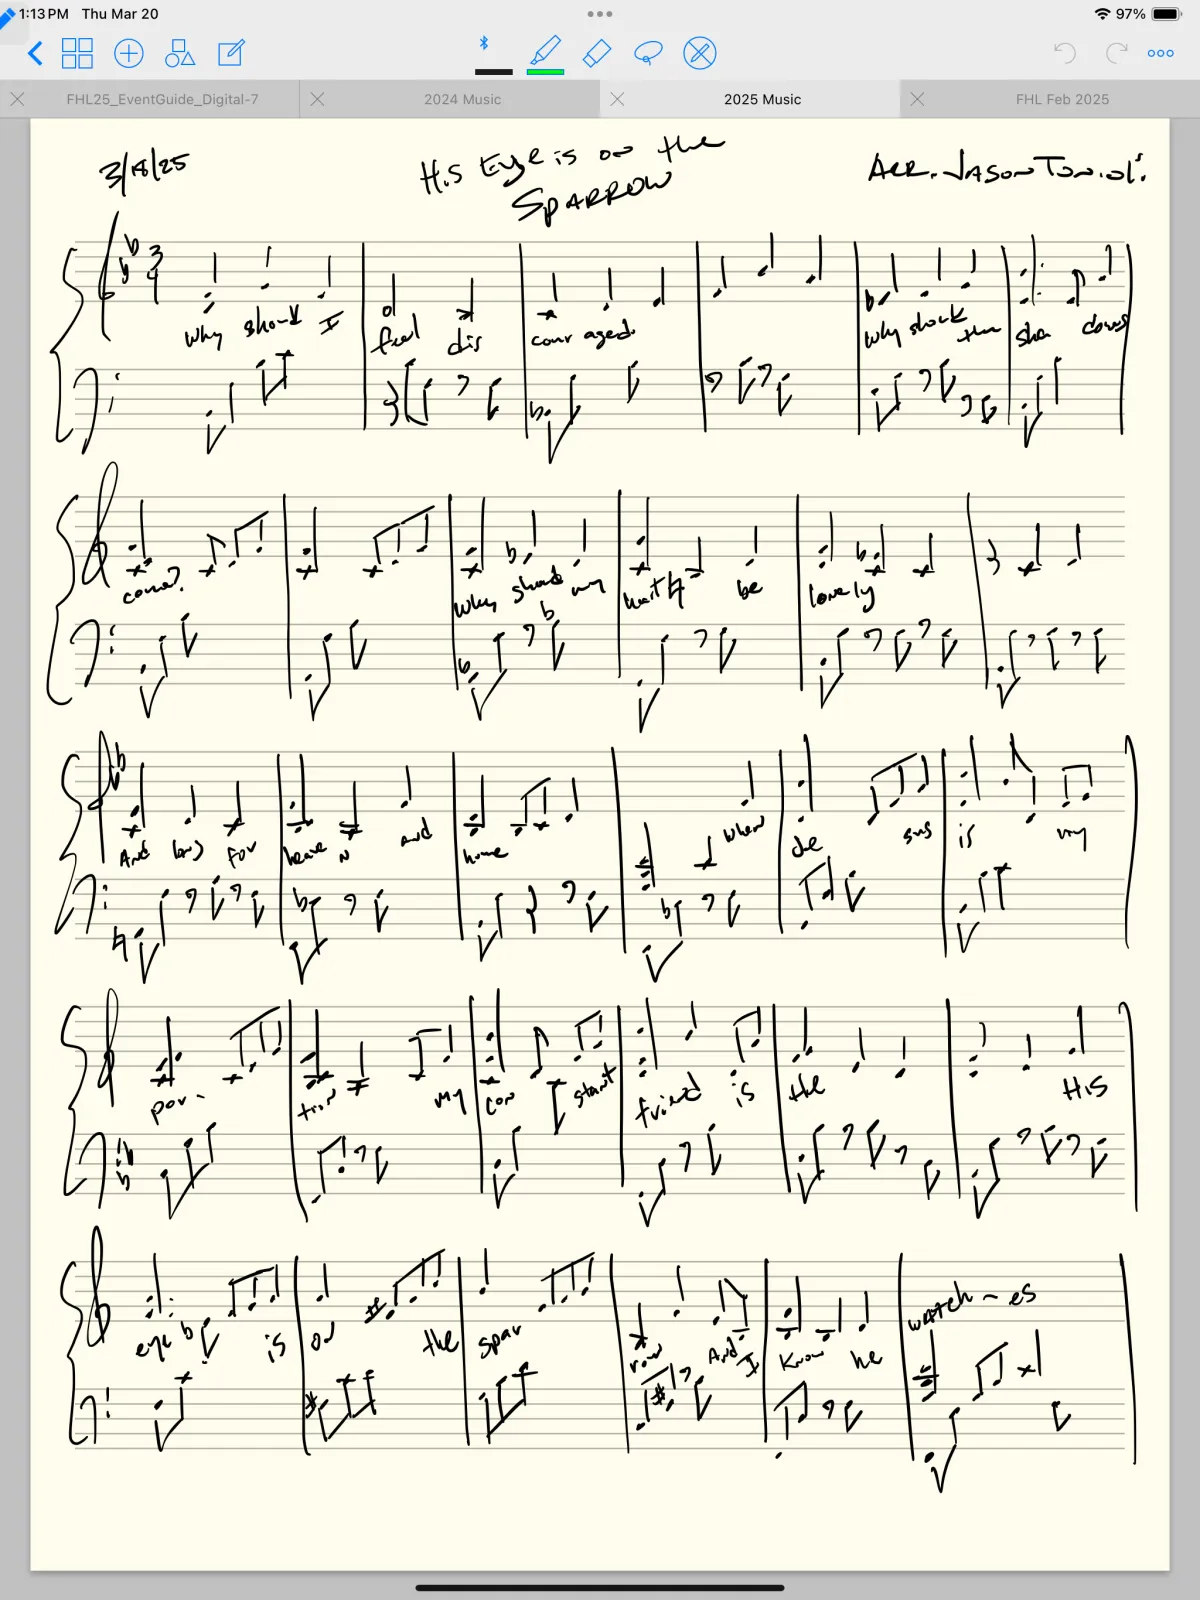 1:13 PM Thu Mar 20
97%
FHL25_EventGuide_Digital-7
2024 Music
2025 Music
FHL Feb 2025
3/18/25
His Eye is on the
Sparrow
Arr. Jason Tonioli
3
4
Why should I feel dis cour aged. Why should the sha dows
come? Why should my heart be lonely
And long for heave n and home when Je sus is my
por- tion my con stant friend is the His
eye is on the spar row And I Know he watch - es